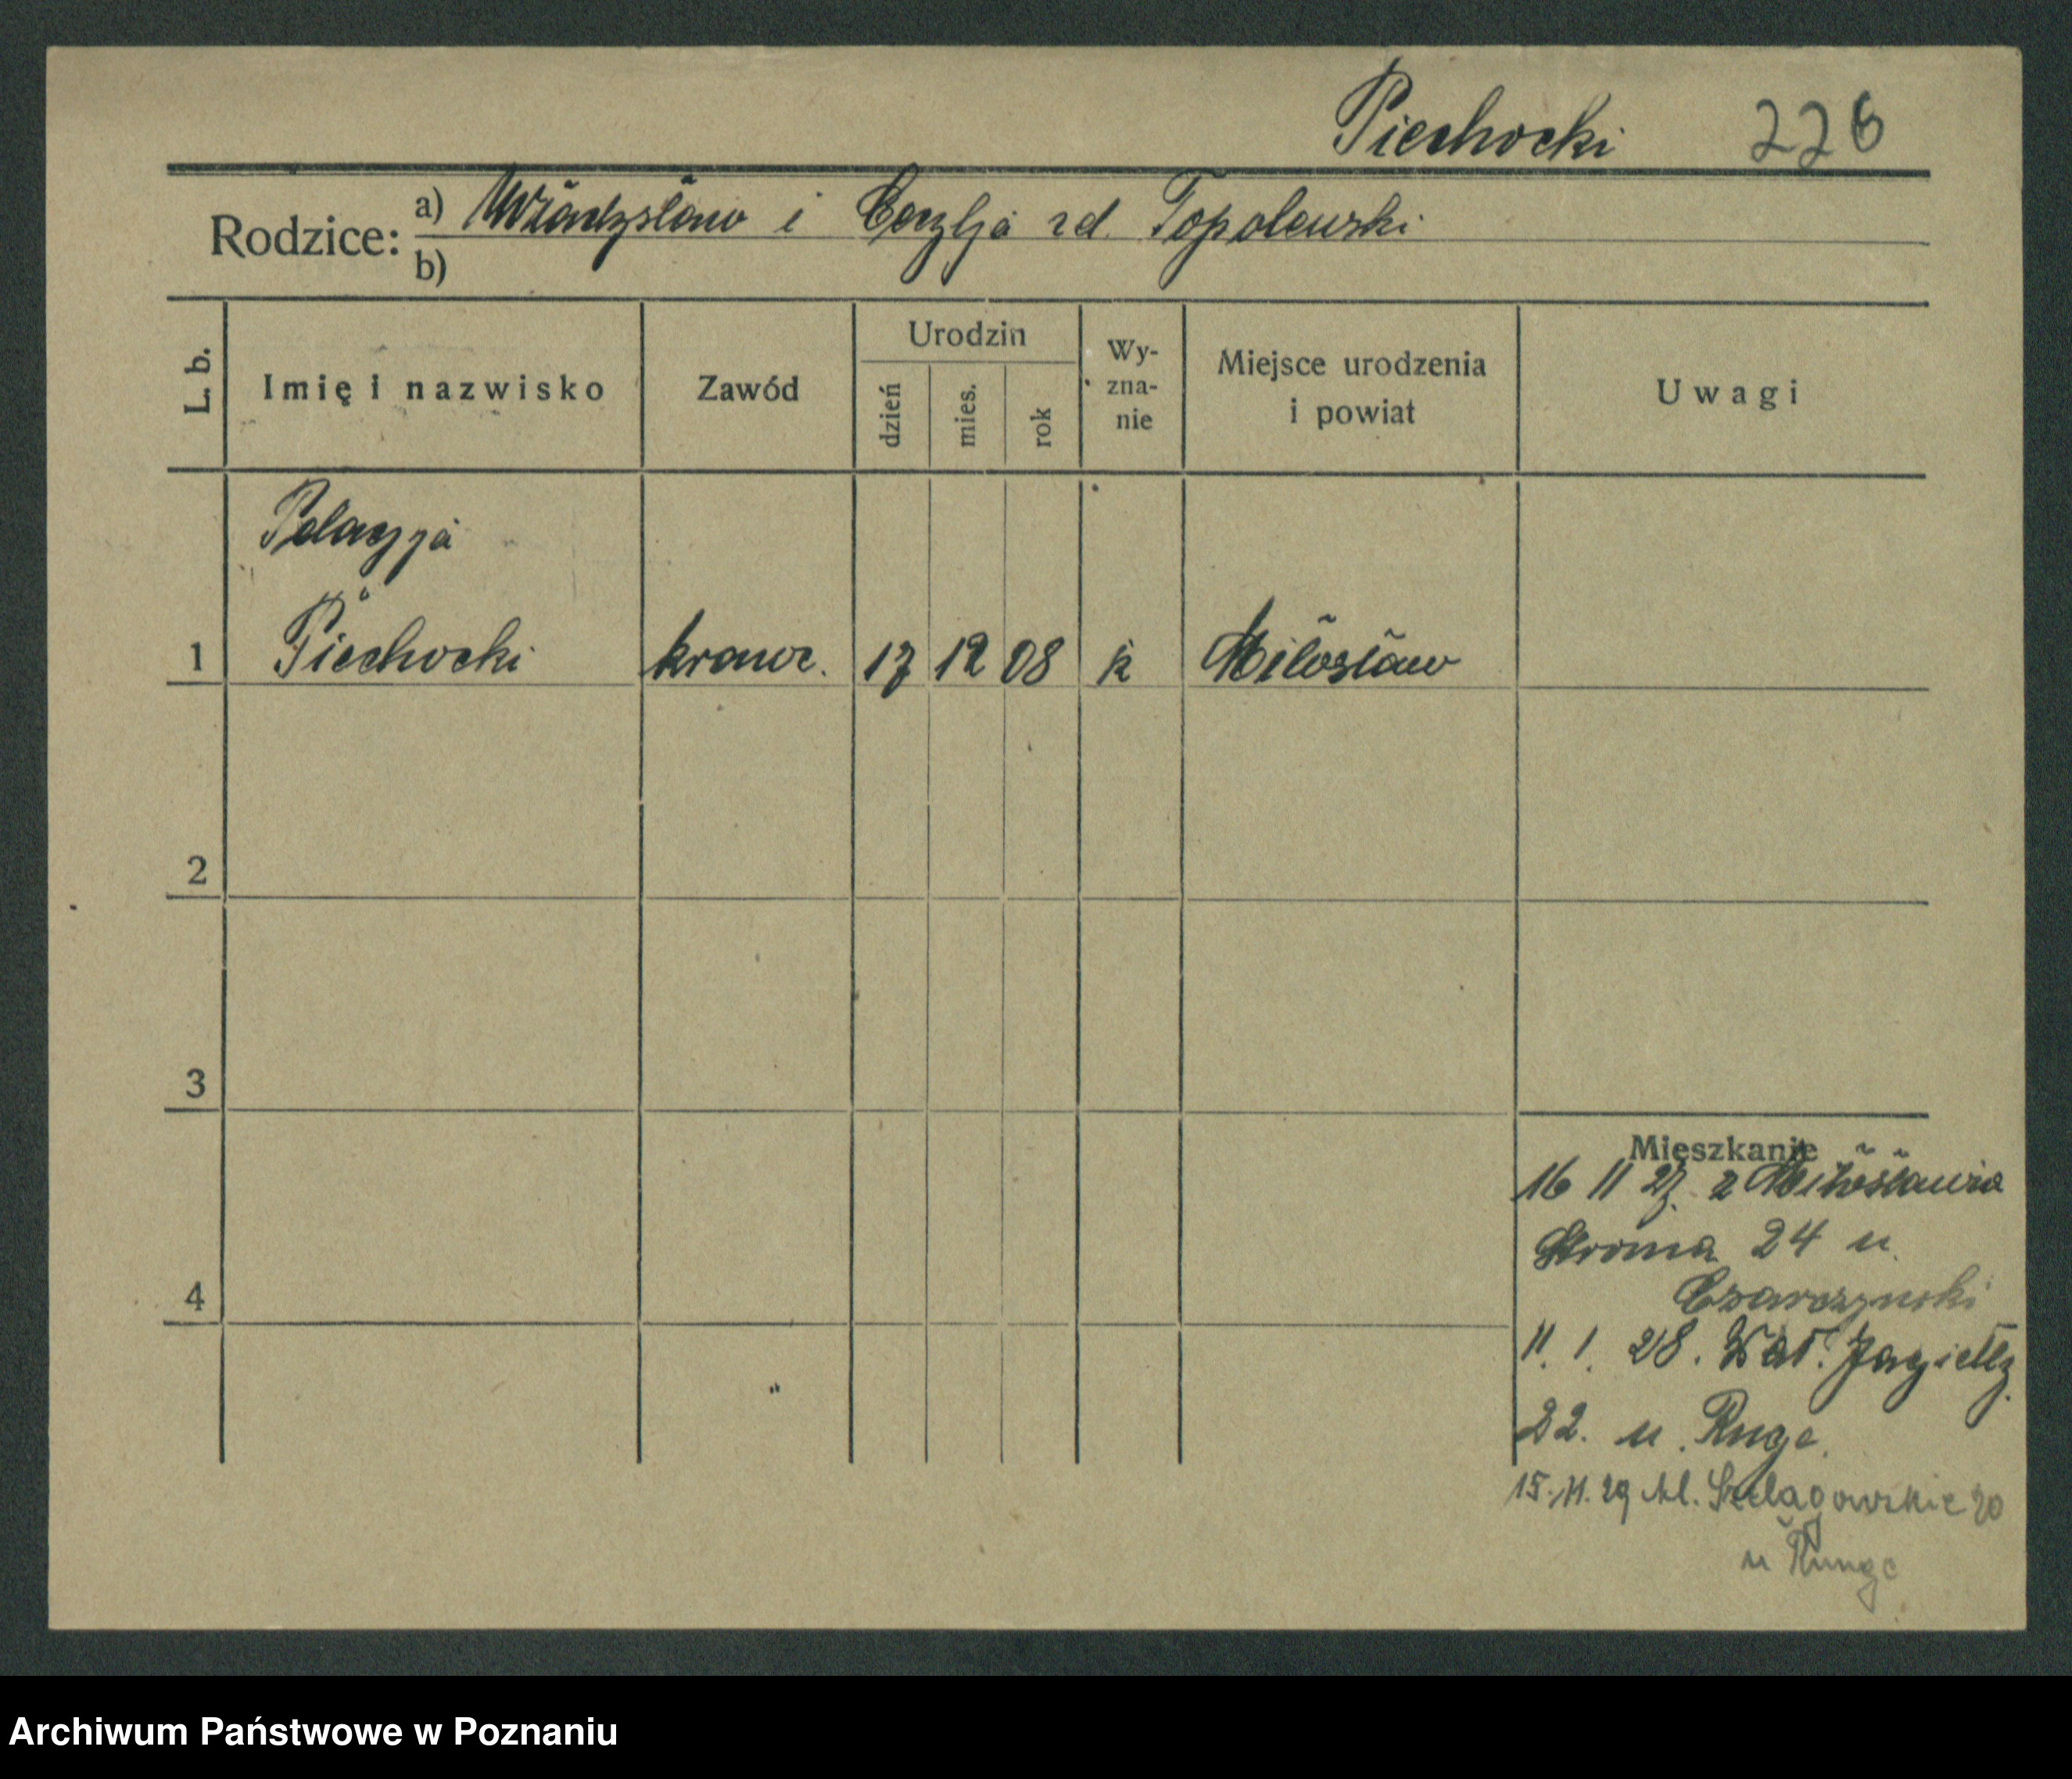 Piechocki 226
Rodzice: a) Władysław i Cecylja rd. Topolewski
b)
L. b. Imię i nazwisko Zawód Urodzin dzień mies. rok Wyznanie Miejsce urodzenia i powiat Uwagi
Pelagja
1 Piechocki krawc. 17 12 08 k Miłosław
2
3
Mieszkanie
16 11 27. z Miłosławia
Stroma 24 u.
4
11. 1. 28. Wał. Jagiełły
22. u. Runge.
15. 11. 29 Al. Szelągowskie 20
u Runge
Archiwum Państwowe w Poznaniu